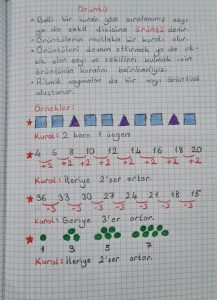 Örüntü
• Belli bir kurala göre sıralanmış sayı
ya da şekil dizisine örüntü denir.
• Örüntülerin mutlaka bir kuralı olur.
• Örüntüleri devam ettirmek ya da ek-
sik olan sayı ve şekilleri bulmak için
örüntünün kuralını belirlemeliyiz.
• Ritmik saymalar da bir sayı örüntüsü
oluşturur.
Örnekler:
Kural: 2 kare 1 üçgen
4 6 8 10 12 14 16 18 20
+2 +2 +2 +2 +2 +2 +2 +2
Kural: İleriye 2'şer artar.
36 33 30 27 24 21 18 15
-3 -3 -3 -3 -3 -3 -3
Kural: Geriye 3'er artar.
1 3 5 7
Kural: İleriye 2'şer artar.